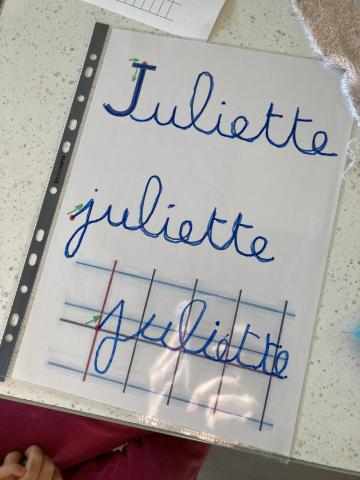 Juliette
juliette
juliette